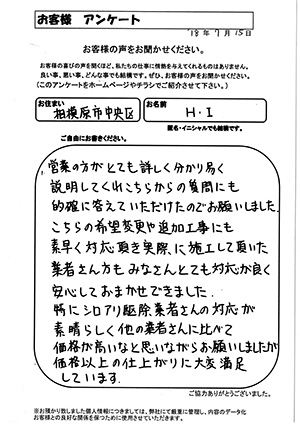 お客様 アンケート
'18年7月15日
お客様の声をお聞かせください。
お客様の喜びの声を聞くほど、私たちの仕事に情熱を与えてくれるものはありません。
良い事、悪い事、どんな事でも結構です。ぜひ、お客様の声をお聞かせください。
(このアンケートをホームページやチラシでご紹介させて下さい。)
お住まい
相模原市中央区
お名前
H・I
匿名・イニシャルでも結構です。
ご自由にお書きください。
営業の方がとても詳しく分かり易く
説明してくれこちらからの質問にも
的確に答えていただけたのでお願いしました。
こちらの希望変更や追加工事にも
素早く対応頂き実際に施工して頂いた
業者さん方もみなさんとても対応が良く
安心しておまかせできました。
特にシロアリ駆除業者さんの対応が
素晴らしく他の業者さんに比べて
価格が高いなと思いながらお願いしましたが
価格以上の仕上がりに大変満足
しています。
ご協力ありがとうございました。
※お預かり致しました個人情報につきましては、弊社にて厳重に管理し、内容のデータ化
お客様との良好な関係を保つために使用させていただきます。